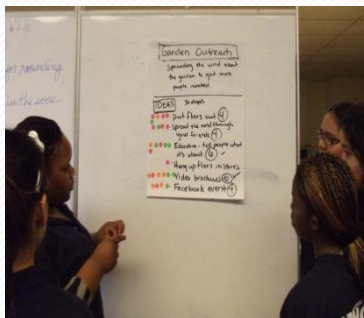 for rounding
Garden Outreach
Spreading the word about
the garden to get more
people involved
IDEAS Strategies
Put fliers out 4
Spread the word through
your friends 4
Education - tell people what
it's about 6
Hang up fliers in stores
Video brochures
Facebook event 4